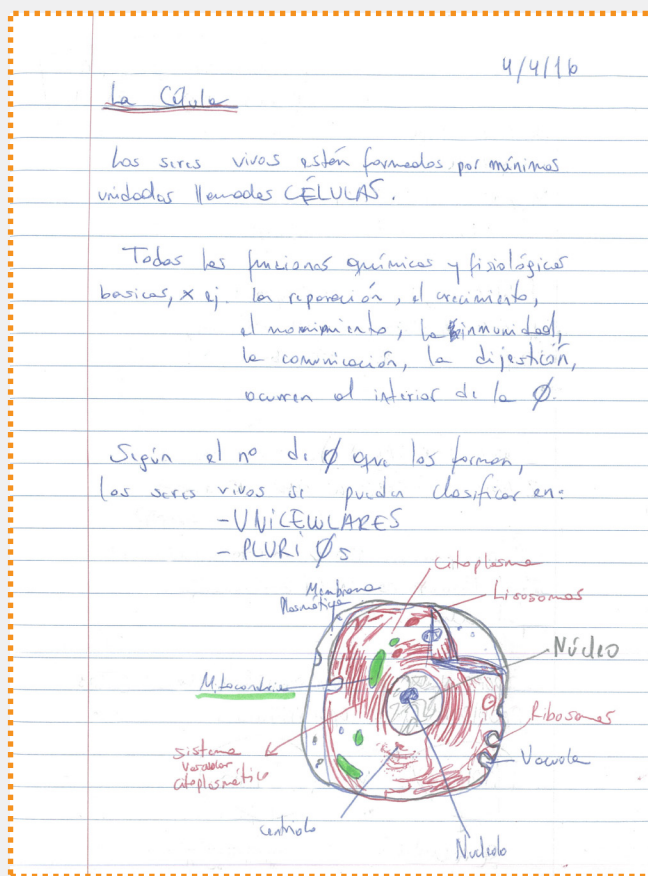 4/4/16
La Célula
Los seres vivos están formados por mínimas
unidades llamadas CÉLULAS.
Todas las funciones químicas y fisiológicas
basicas, x ej. la reparación, el crecimiento,
el movimiento, la inmunidad,
la comunicación, la dijestión,
ocurren al interior de la Ø.
Según el nº de Ø que los forman,
los seres vivos se pueden clasificar en:
- UNICELULARES
- PLURI Øs
Citoplasma
Membrana
Plasmática
Lisosomas
Núcleo
Mitocondria
Ribosomas
sistema
vacuolar
citoplasmático
Vacuola
centriolo
Nucleolo